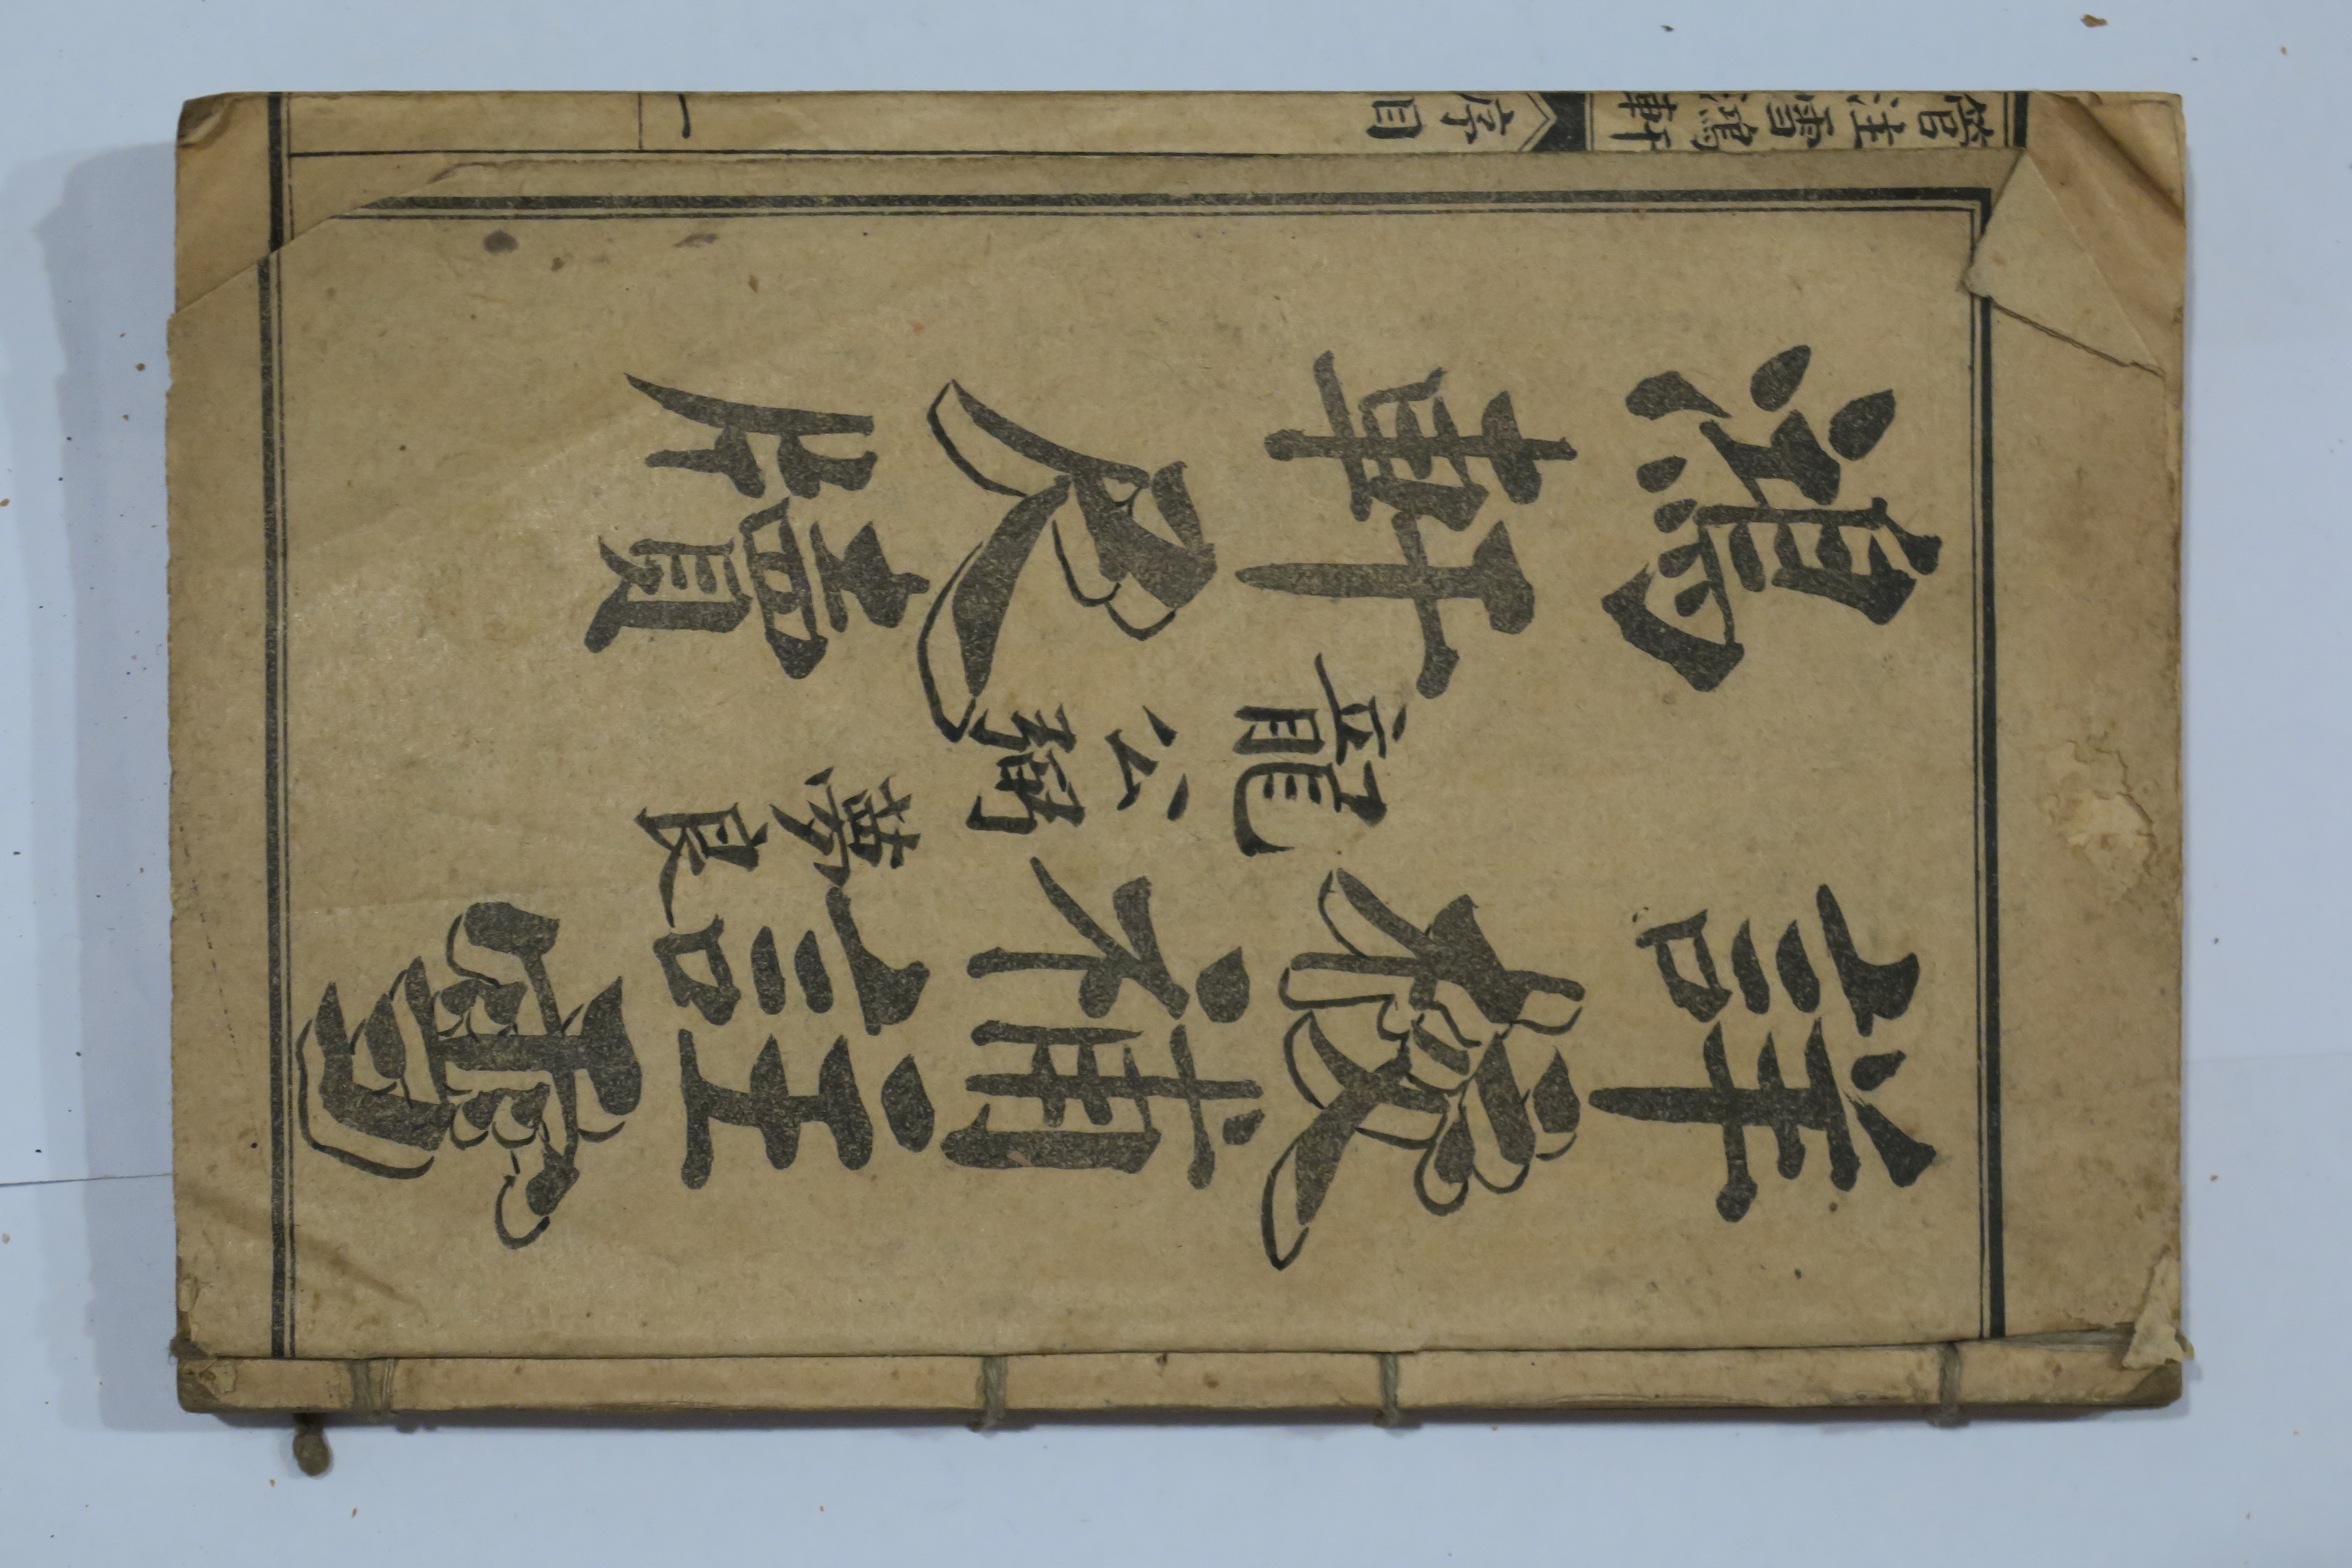 詳校補註雪
龍公弼夢良
鴻軒尺牘
管注雪鴻軒
序目
一